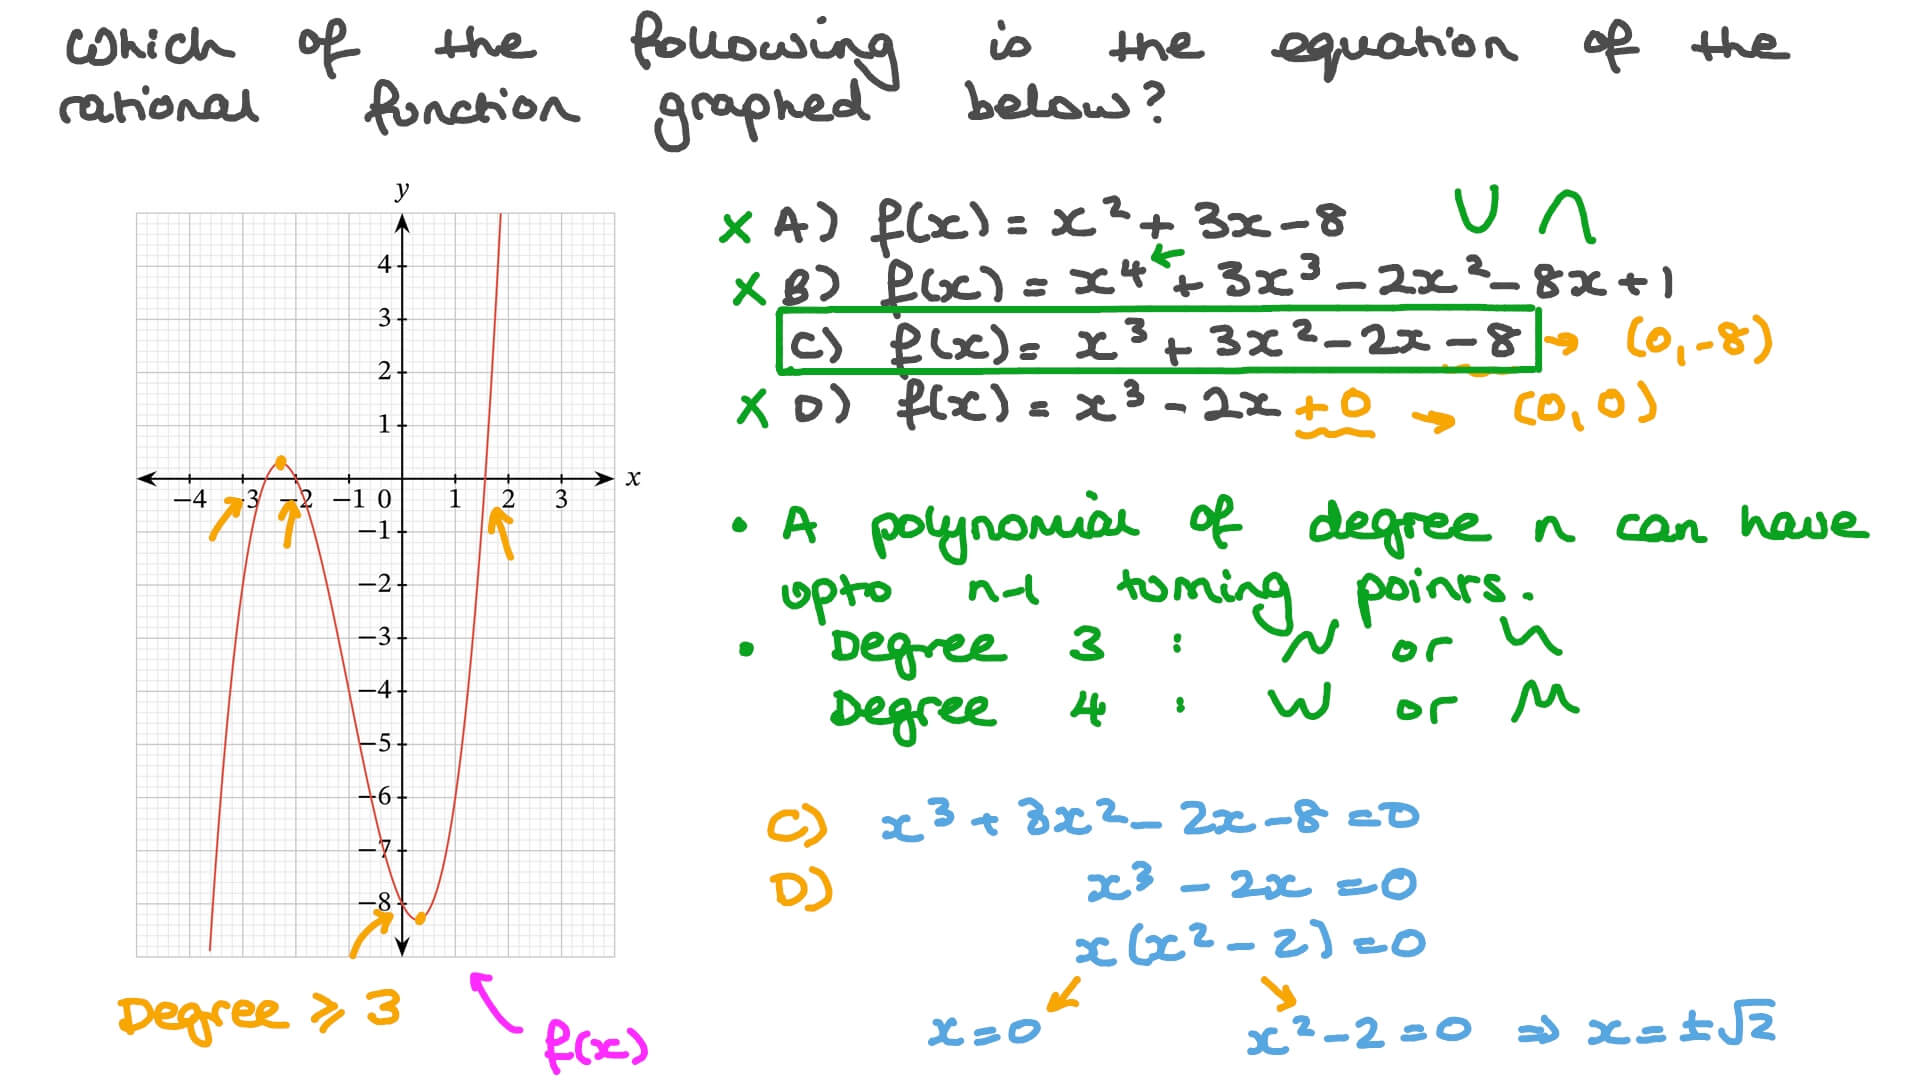 Which of the following is the equation of the
rational function graphed below?
y
4
3
2
1
x
−4 −3 −2 −1 0 1 2 3
−1
−2
−3
−4
−5
−6
−7
−8
Degree ⩾ 3
f(x)
× A) f(x) = x² + 3x − 8 ∪ ∩
× B) f(x) = x⁴ + 3x³ − 2x² − 8x + 1
C) f(x) = x³ + 3x² − 2x − 8 → (0, −8)
× D) f(x) = x³ − 2x + 0 → (0, 0)
• A polynomial of degree n can have
upto n−1 turning points.
• Degree 3 : N or И
Degree 4 : W or M
C) x³ + 3x² − 2x − 8 = 0
D) x³ − 2x = 0
x(x² − 2) = 0
x = 0 x² − 2 = 0 ⇒ x = ±√2